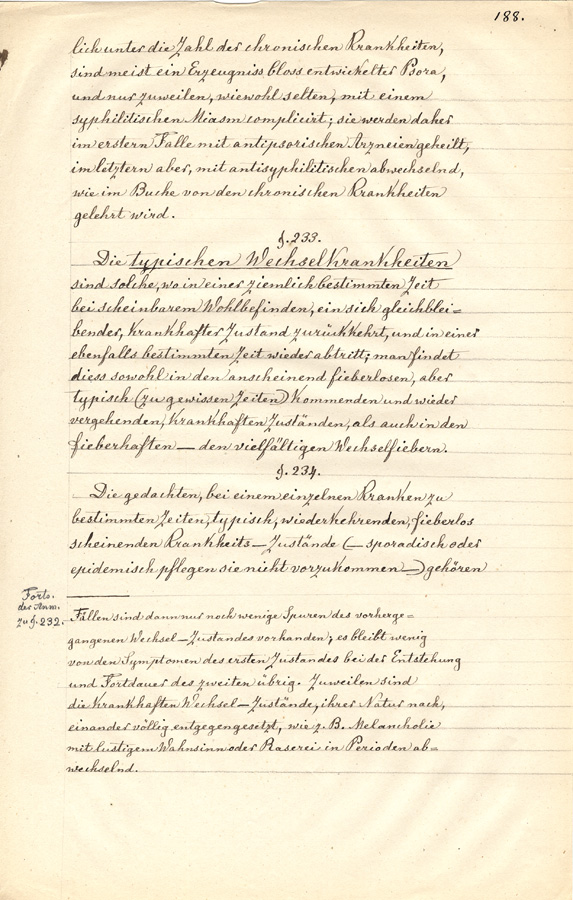 188.
lich unter die Zahl der chronischen Krankheiten,
sind meist ein Erzeugniss bloss entwickelter Psora,
und nur zuweilen, wiewohl selten, mit einem
syphilitischen Miasm complicirt; sie werden daher
im erstern Falle mit antipsorischen Arzneien geheilt,
im letztern aber, mit antisyphilitischen abwechselnd,
wie im Buche von den chronischen Krankheiten
gelehrt wird.
§. 233.
Die typischen Wechselkrankheiten
sind solche, wo in einer ziemlich bestimmten Zeit
bei scheinbarem Wohlbefinden, ein sich gleichblei=
bender, krankhafter Zustand zurückkehrt, und in einer
ebenfalls bestimmten Zeit wieder abtritt; man findet
diess sowohl in den anscheinend fieberlosen, aber
typisch (zu gewissen Zeiten) kommenden und wieder
vergehenden, krankhaften Zuständen, als auch in den
fieberhaften — den vielfältigen Wechselfiebern.
§. 234.
Die gedachten, bei einem einzelnen Kranken zu
bestimmten Zeiten, typisch, wiederkehrenden, fieberlos
scheinenden Krankheits-Zustände (— sporadisch oder
epidemisch pflegen sie nicht vorzukommen —) gehören
Forts.
der Anm.
zu §. 232.
Fällen sind dann nur noch wenige Spuren des vorherge=
gangenen Wechsel-Zustandes vorhanden; es bleibt wenig
von den Symptomen des ersten Zustandes bei der Entstehung
und Fortdauer des zweiten übrig. Zuweilen sind
die krankhaften Wechsel-Zustände, ihrer Natur nach,
einander völlig entgegengesetzt, wie z. B. Melancholie
mit lustigem Wahnsinn oder Raserei in Perioden ab=
wechselnd.